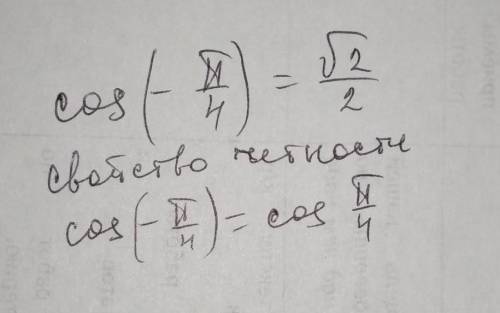 cos(-π/4) = √2/2
свойство четности
cos(-π/4) = cos π/4